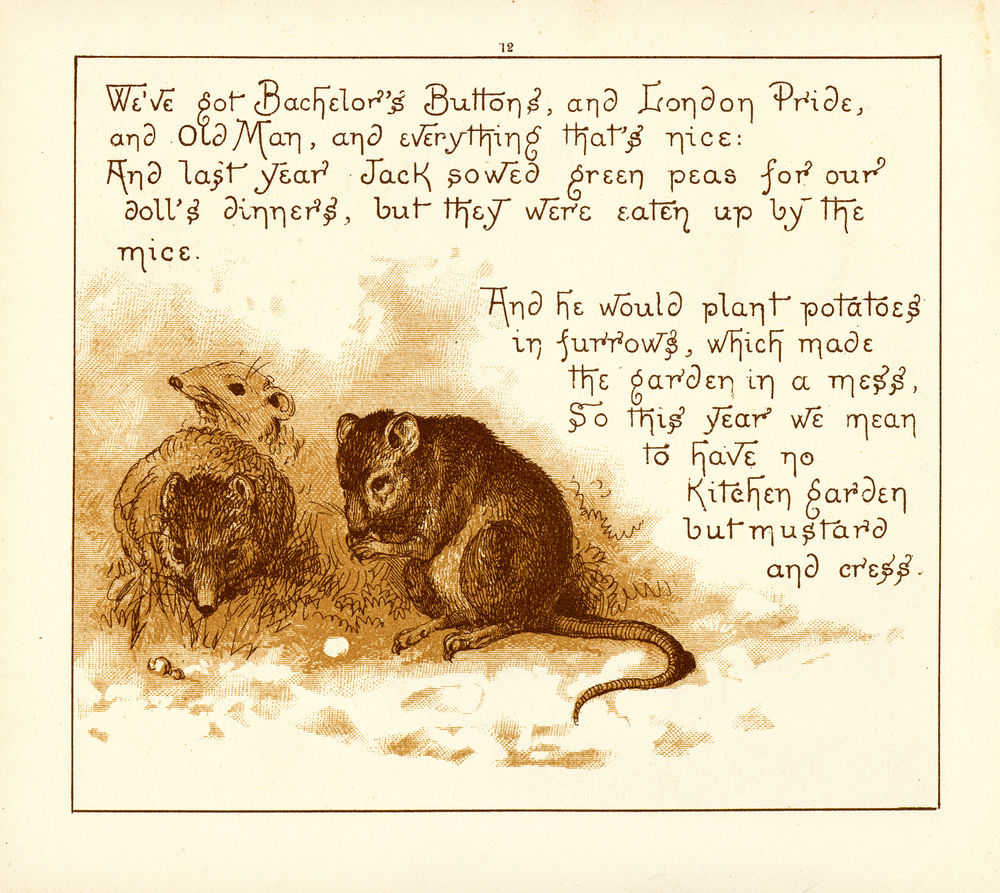 12
We've got Bachelor's Buttons, and London Pride,
and Old Man, and everything that's nice:
And last year Jack sowed green peas for our
doll's dinners, but they were eaten up by the
mice.
And he would plant potatoes
in furrows, which made
the garden in a mess,
So this year we mean
to have no
Kitchen garden
but mustard
and cress.